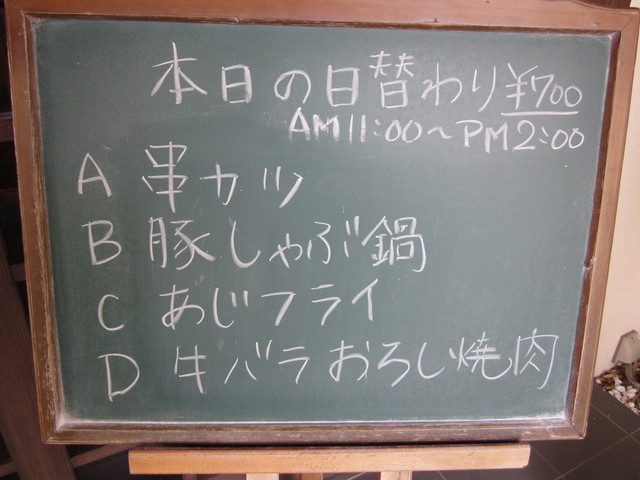 本日の日替わり ¥700
AM11:00~PM2:00
A 串カツ
B 豚しゃぶ鍋
C あじフライ
D 牛バラおろし焼肉